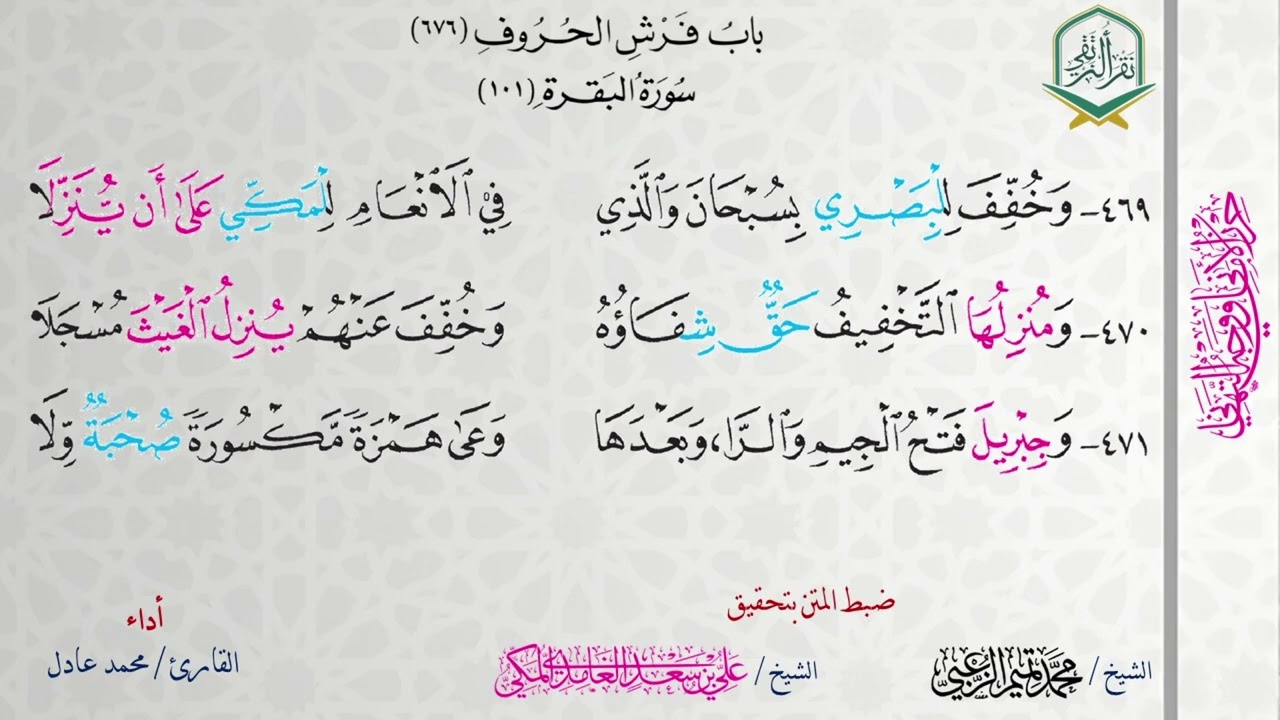 بابُ فَرْشِ الحُرُوفِ (٦٧٦)
سُورَةُ البَقَرةِ (١٠١)
نقرأ لنرتقي
٤٦٩- وَخُفِّفَ لِلْبَصْرِي بِسُبْحَانَ وَالَّذِي فِي الَانْعَامِ لِلْمَكِّي عَلَىٰ أَن يُنَزِّلَا
٤٧٠- وَمُنزِلُهَا التَّخْفِيفُ حَقٌّ شِفَاؤُهُ وَخُفِّفَ عَنْهُمْ يُنزِلُ الْغَيْثَ مُسْجَلَا
٤٧١- وَجِبْرِيلَ فَتْحُ الْجِيمِ وَالرَّا، وَبَعْدَهَا وَعَىٰ هَمْزَةً مَّكْسُورَةً صُحْبَةٌ وِّلَا
حرز الأماني ووجه التهاني
ضبط المتن بتحقيق
أداء
الشيخ / محمد تميم الزعبي
الشيخ / علي بن سعد الغامدي المكي
القارئ / محمد عادل